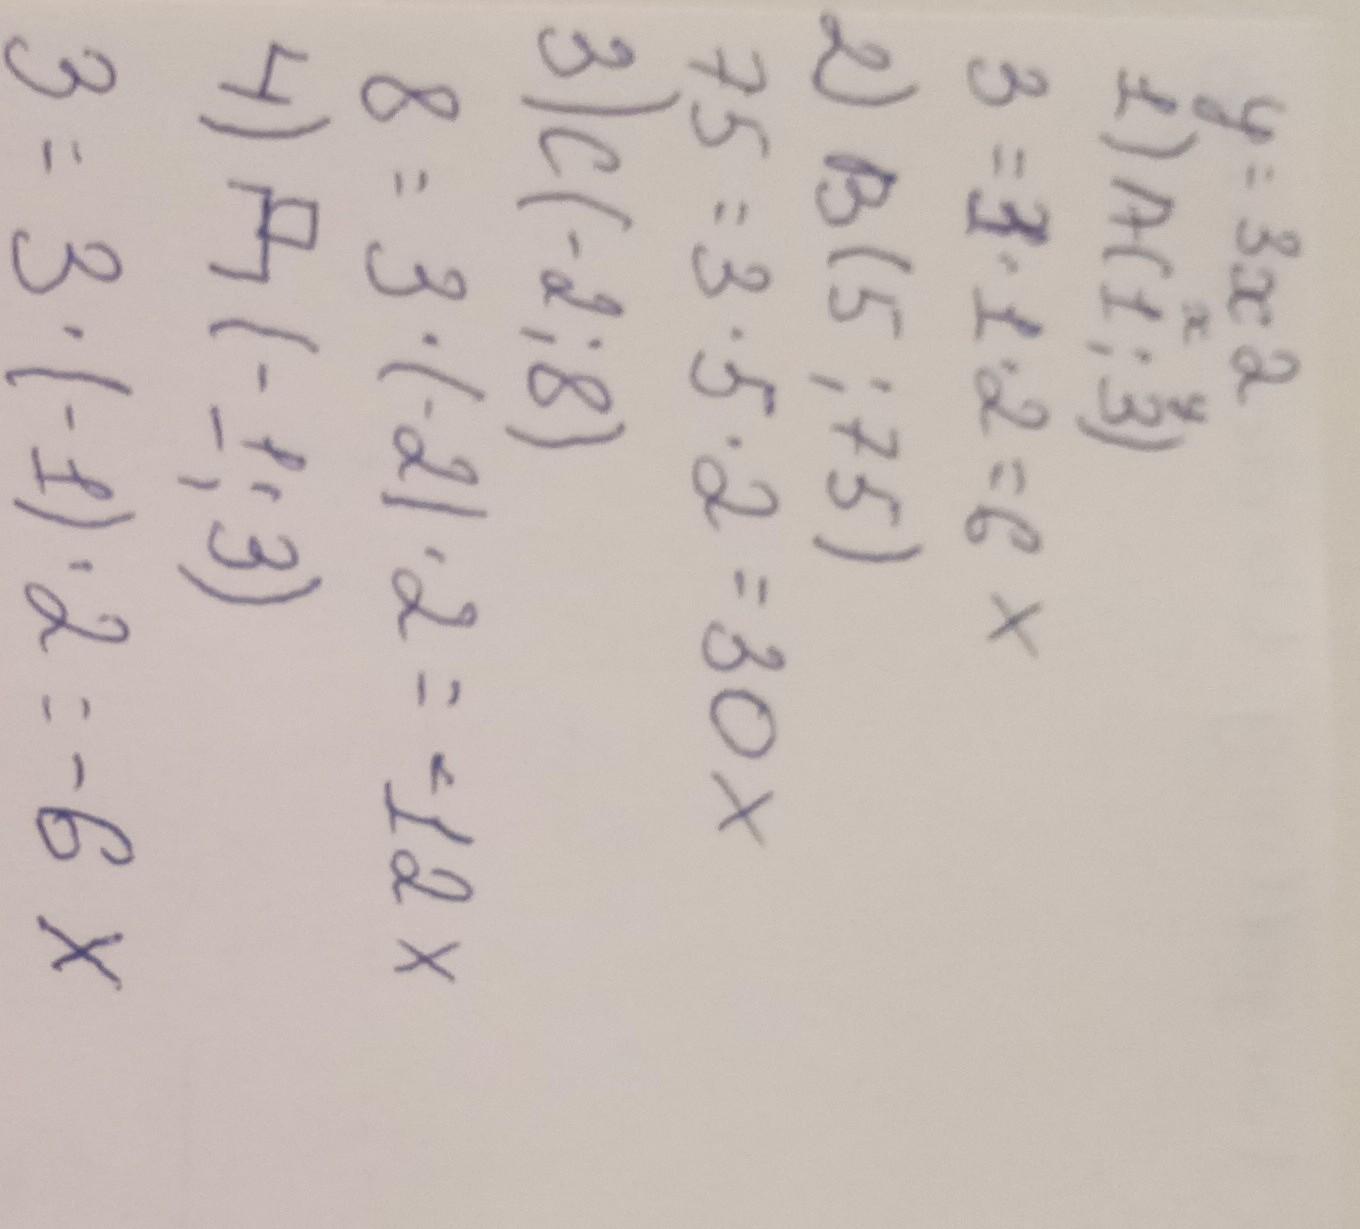 y = 3x2
x y
1) A(1;3)
3 = 3·1·2 = 6 x
2) B(5;75)
75 = 3·5·2 = 30 x
3) C(-2;8)
8 = 3·(-2)·2 = -12 x
4) Д(-1;3)
3 = 3·(-1)·2 = -6 x